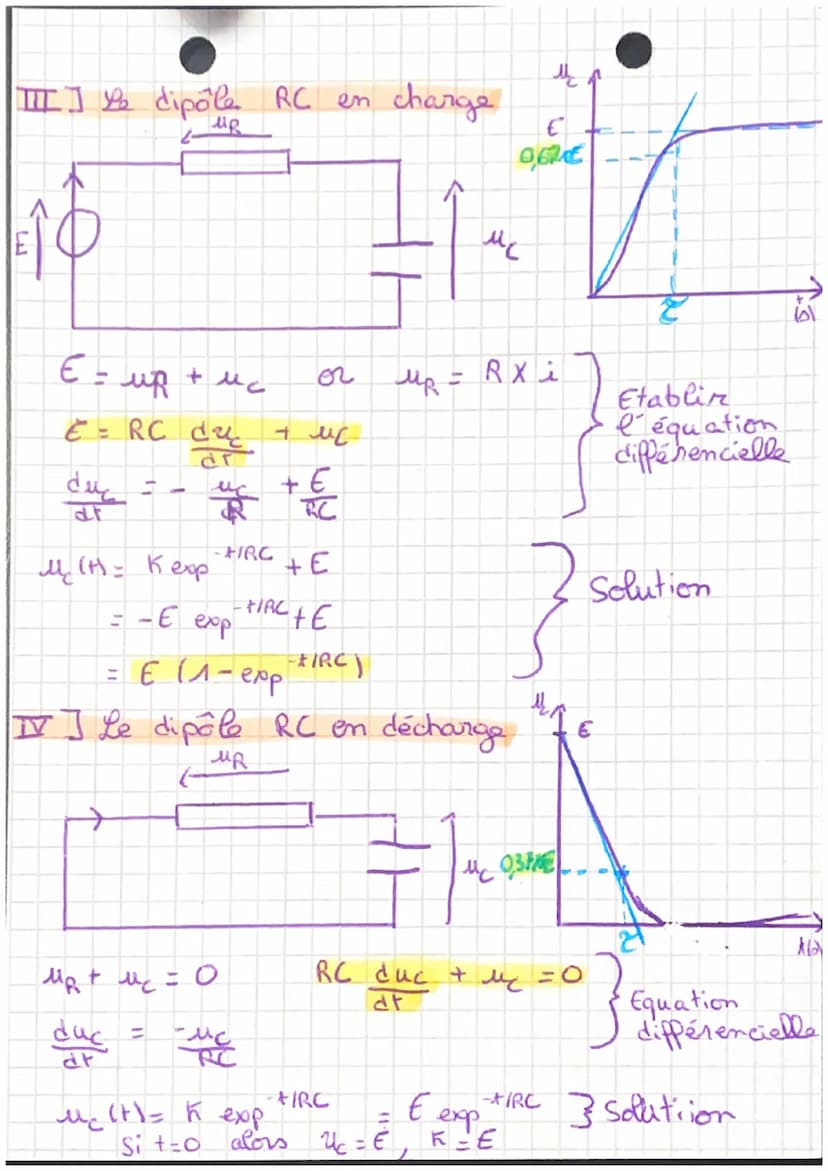 III] Le dipôle RC en charge
uR
E
uC
uC
E
0,63×E
τ
t(s)
E = uR + uC or uR = R × i
E = RC duC/dt + uC
duC/dt = - uC/RC + E/RC
Etablir
l'équation
différencielle
uC(t) = K exp^-t/RC + E
= -E exp^-t/RC + E
= E (1 - exp^-t/RC)
Solution
IV] Le dipôle RC en décharge
uR
uC
uC
E
0,37×E
τ
t(s)
uR + uC = 0
RC duC/dt + uC = 0
duC/dt = -uC/RC
Equation
différencielle
uC(t) = K exp^-t/RC = E exp^-t/RC } Solutiion
Si t=0 alors uC = E, K = E